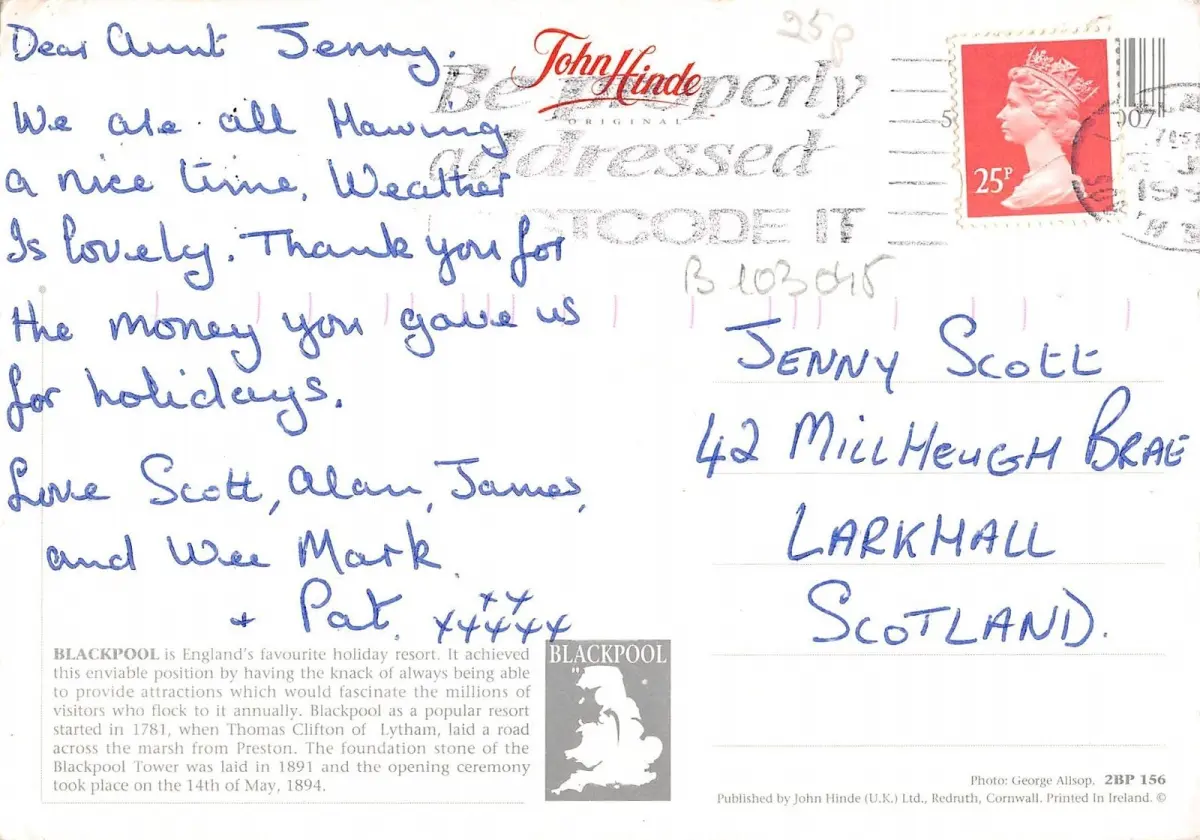 Dear Aunt Jenny.
We are all Having
a nice time. Weather
Is lovely. Thank you for
the money you gave us
for holidays.
Love Scott, Alan, James,
and Wee Mark
+ Pat. xx
xxxxx
BLACKPOOL is England's favourite holiday resort. It achieved
this enviable position by having the knack of always being able
to provide attractions which would fascinate the millions of
visitors who flock to it annually. Blackpool as a popular resort
started in 1781, when Thomas Clifton of Lytham, laid a road
across the marsh from Preston. The foundation stone of the
Blackpool Tower was laid in 1891 and the opening ceremony
took place on the 14th of May, 1894.
BLACKPOOL
John Hinde
ORIGINAL
Be properly
addressed
POSTCODE IT
25p
25P
B103045
JENNY SCOTT
42 MILLHEUGH BRAE
LARKHALL
SCOTLAND.
Photo: George Allsop. 2BP 156
Published by John Hinde (U.K.) Ltd., Redruth, Cornwall. Printed In Ireland. ©